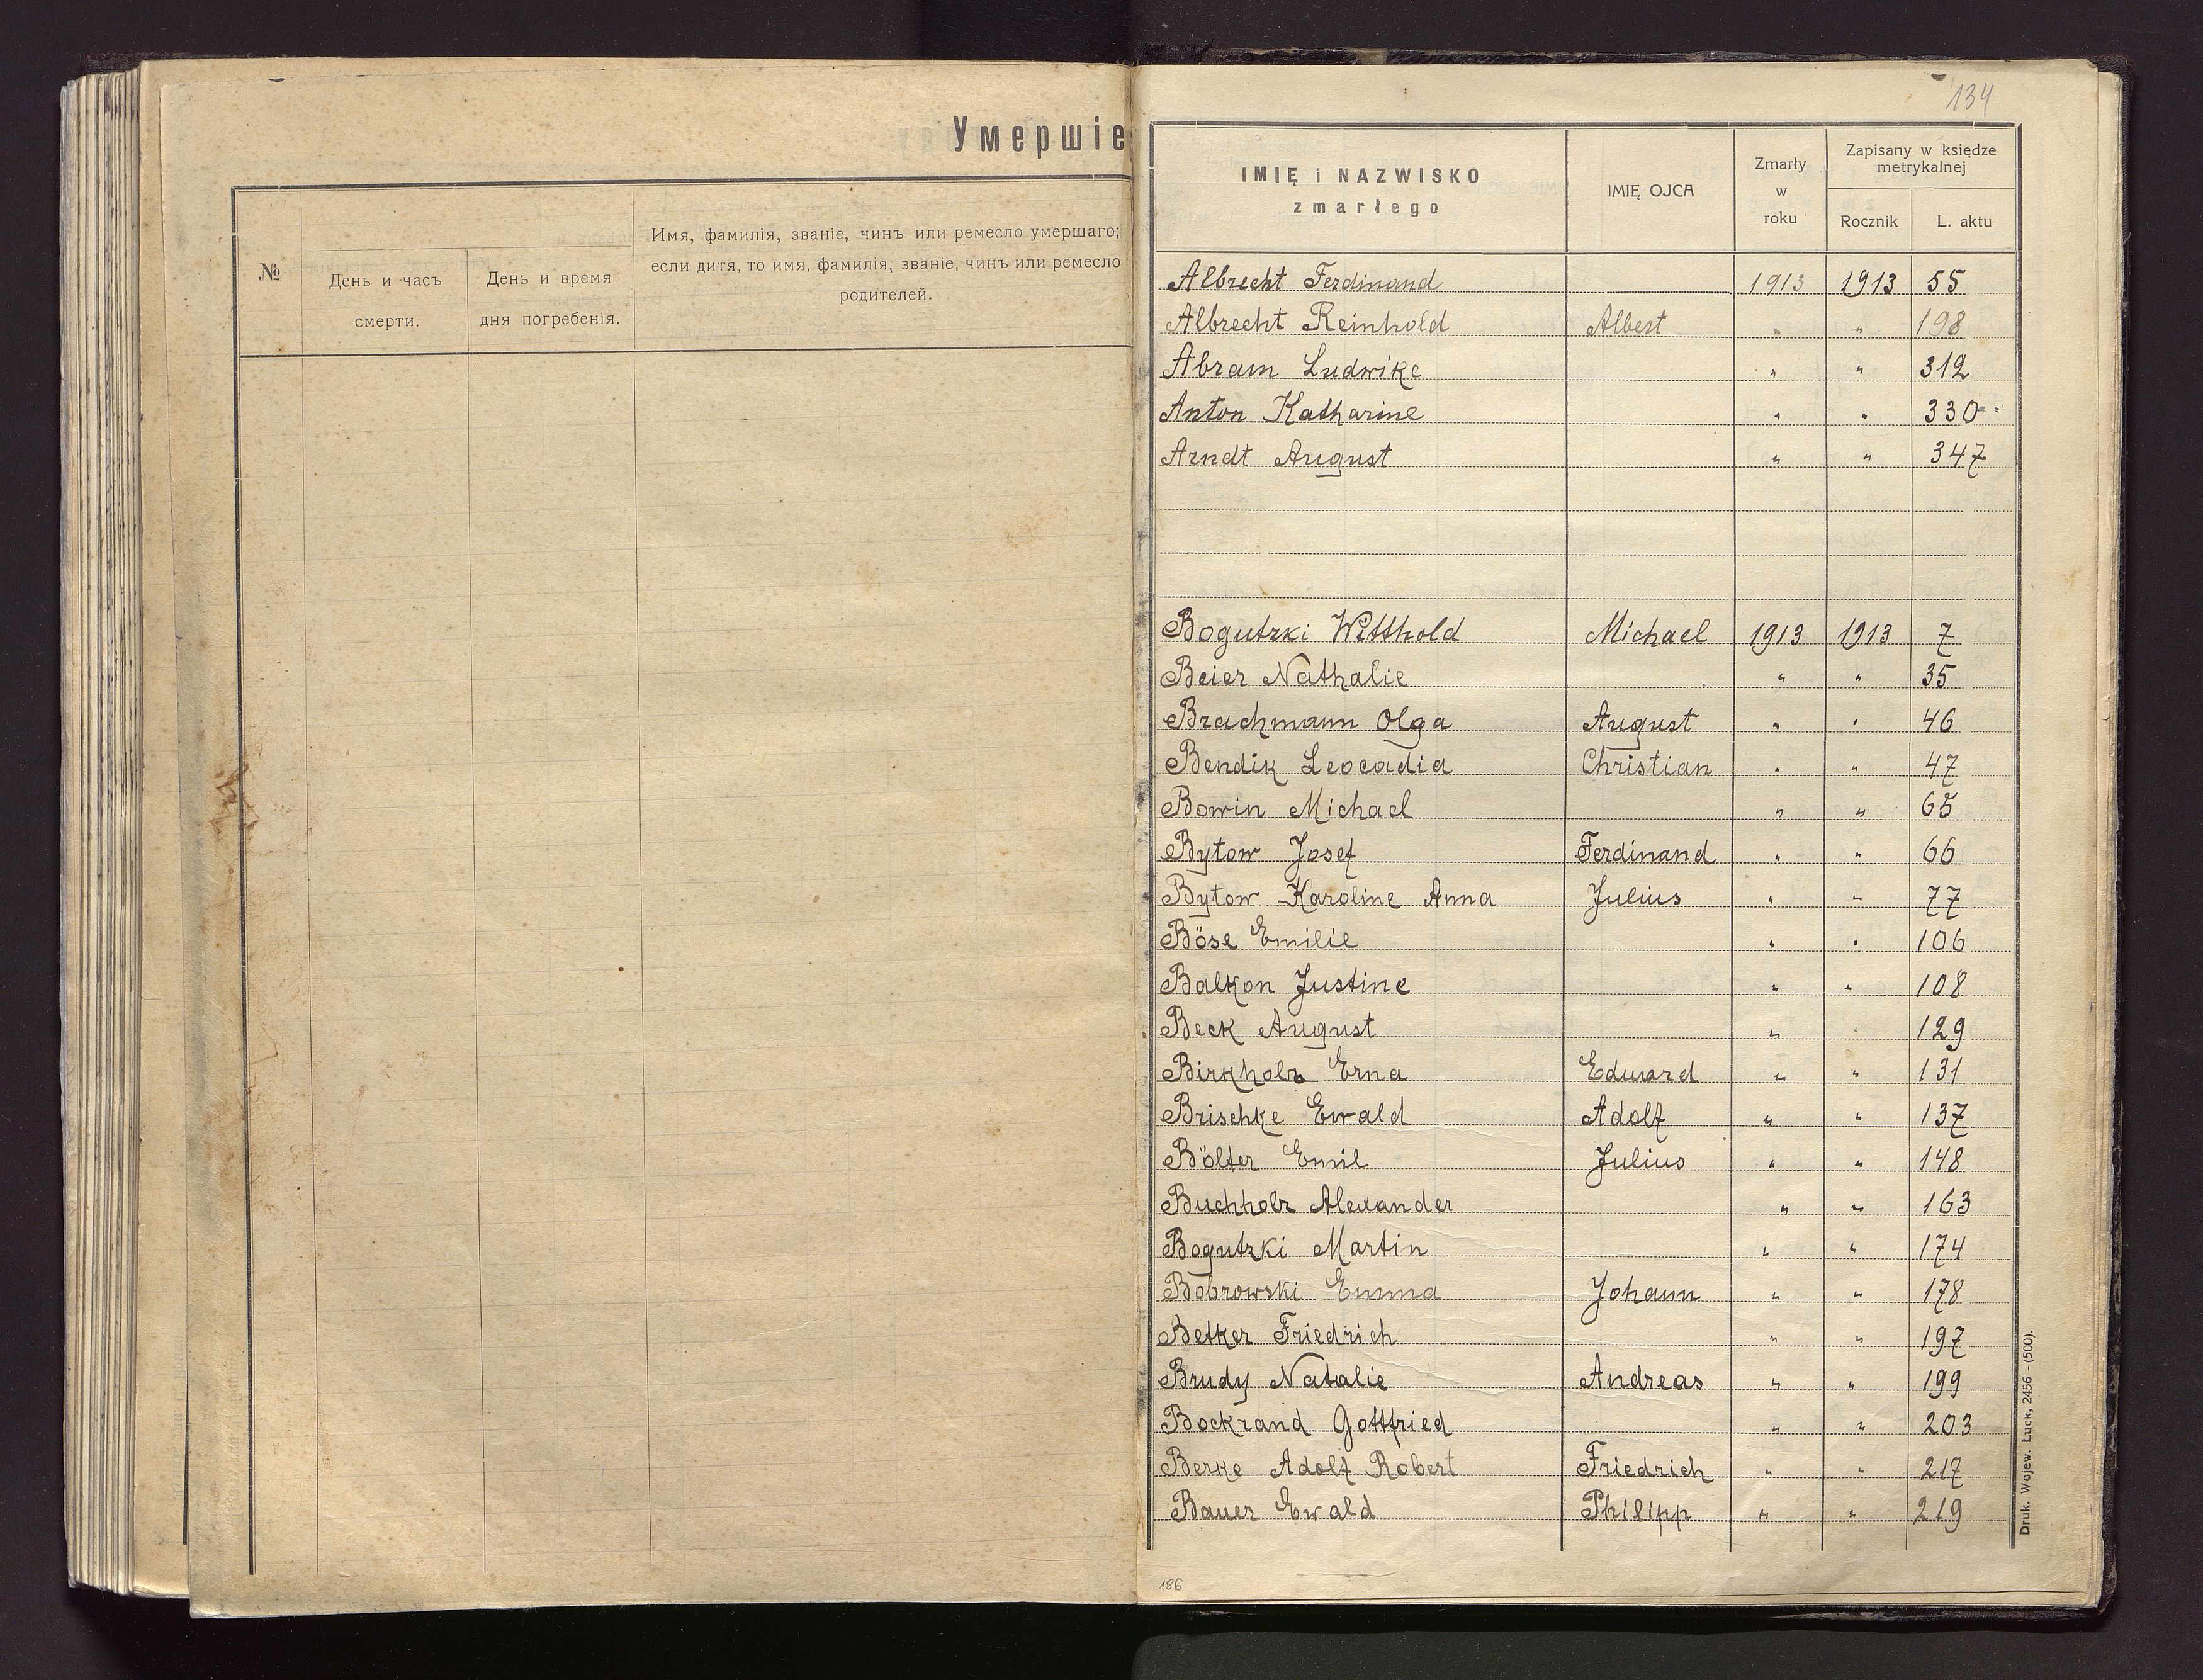 Умершіе
№
День и часъ
смерти.
День и время
дня погребенія.
Имя, фамилія, званіе, чинъ или ремесло умершаго;
если дитя, то имя, фамилія, званіе, чинъ или ремесло
родителей.
134
IMIĘ i NAZWISKO
zmarłego
IMIĘ OJCA
Zmarły
w
roku
Zapisany w księdze
metrykalnej
Rocznik
L. aktu
Albrecht Ferdinand 1913 1913 55
Albrecht Reinhold Albert " " 198
Abram Ludwike " " 312
Anton Katharine " " 330
Arndt August " " 347
Bogutzki Witthold Michael 1913 1913 7
Beier Nathalie " " 35
Brachmann Olga August " " 46
Bendik Leocadia Christian " " 47
Bowin Michael " " 65
Bytow Josef Ferdinand " " 66
Bytow Karoline Anna Julius " " 77
Böse Emilie " " 106
Balkon Justine " " 108
Beck August " 129
Birkholz Erna Eduard " " 131
Brischke Ewald Adolf " " 137
Bölter Emil Julius " " 148
Buchholz Alexander " " 163
Bogutzki Martin " " 174
Bobrowski Emma Johann " " 178
Betker Friedrich " " 197
Brudy Natalie Andreas " " 199
Bockrand Gottfried " " 203
Berke Adolf Robert Friedrich " " 217
Bauer Ewald Philipp " " 219
Druk. Wojew. Luck, 2456 - (500).
186